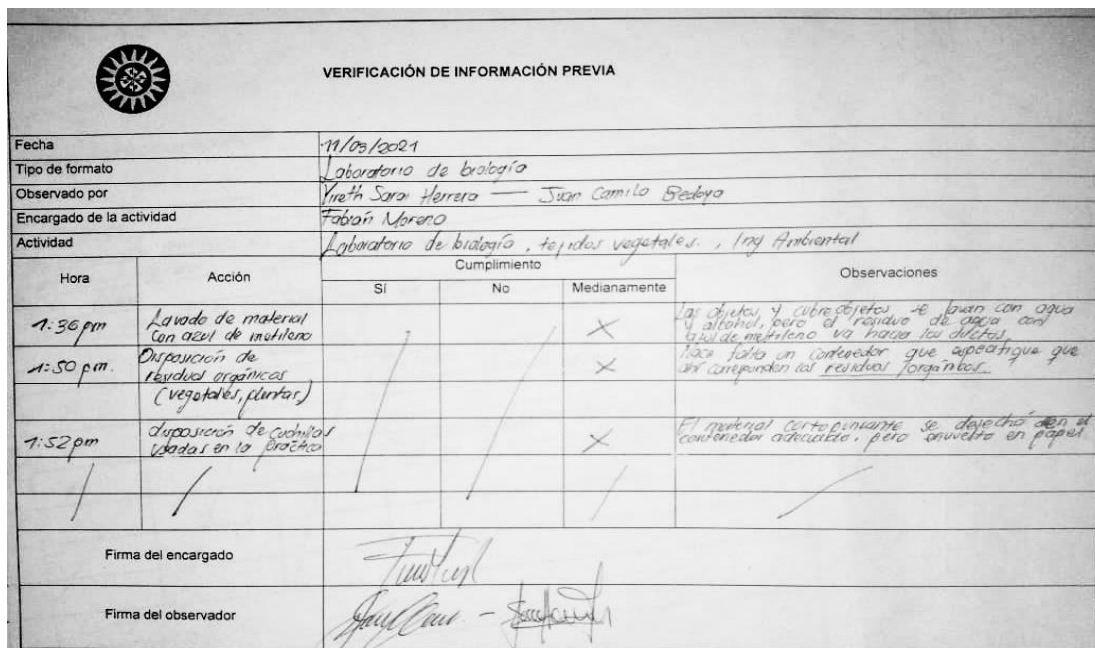 VERIFICACIÓN DE INFORMACIÓN PREVIA
Fecha 11/03/2021
Tipo de formato Laboratorio de biología
Observado por Yireth Sarai Herrera — Juan Camilo Bedoya
Encargado de la actividad Fabián Moreno
Actividad Laboratorio de biología, tejidos vegetales., Ing Ambiental
Hora Acción Cumplimiento Observaciones
Sí No Medianamente
1:36 pm Lavado de material con azul de metileno X
Las objetos, y cubreobjetos se lavan con agua
y alcohol, pero el residuo de agua con
azul de metileno va hacia los ductos.
1:50 pm. Disposición de residuos orgánicos (vegetales, plantas) X
Hace falta un contenedor que especifique que
ahí corresponden los residuos orgánicos.
1:52 pm disposición de cuchillas usadas en la práctica X
El material cortopunzante se desechó en el
contenedor adecuado, pero envuelto en papel
Firma del encargado
Firma del observador